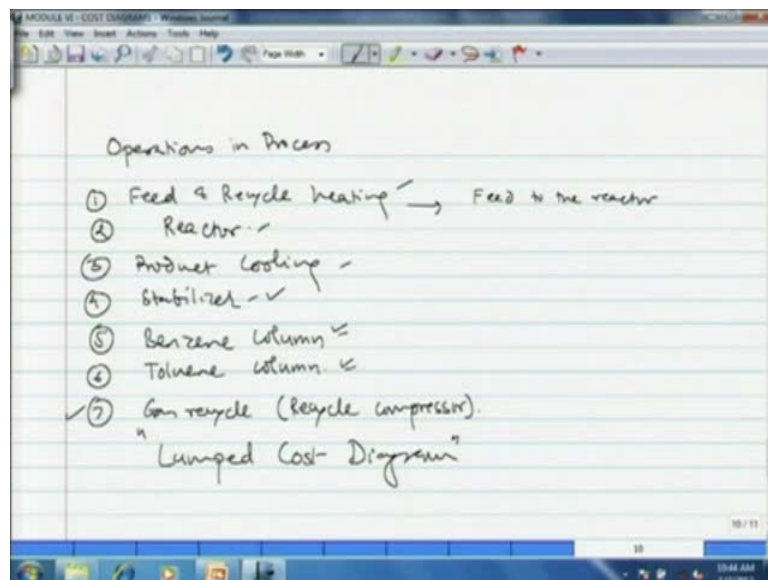 MODULE VI - COST DIAGRAMS - Windows Journal
File Edit View Insert Actions Tools Help
Page Width
Operations in Process
① Feed & Recycle heating → Feed to the reactor
② Reactor
③ Product Cooling
④ Stabilizer
⑤ Benzene Column
⑥ Toluene column
⑦ Gas recycle (Recycle compressor).
"Lumped Cost Diagram"
10 / 11
10
10:44 AM